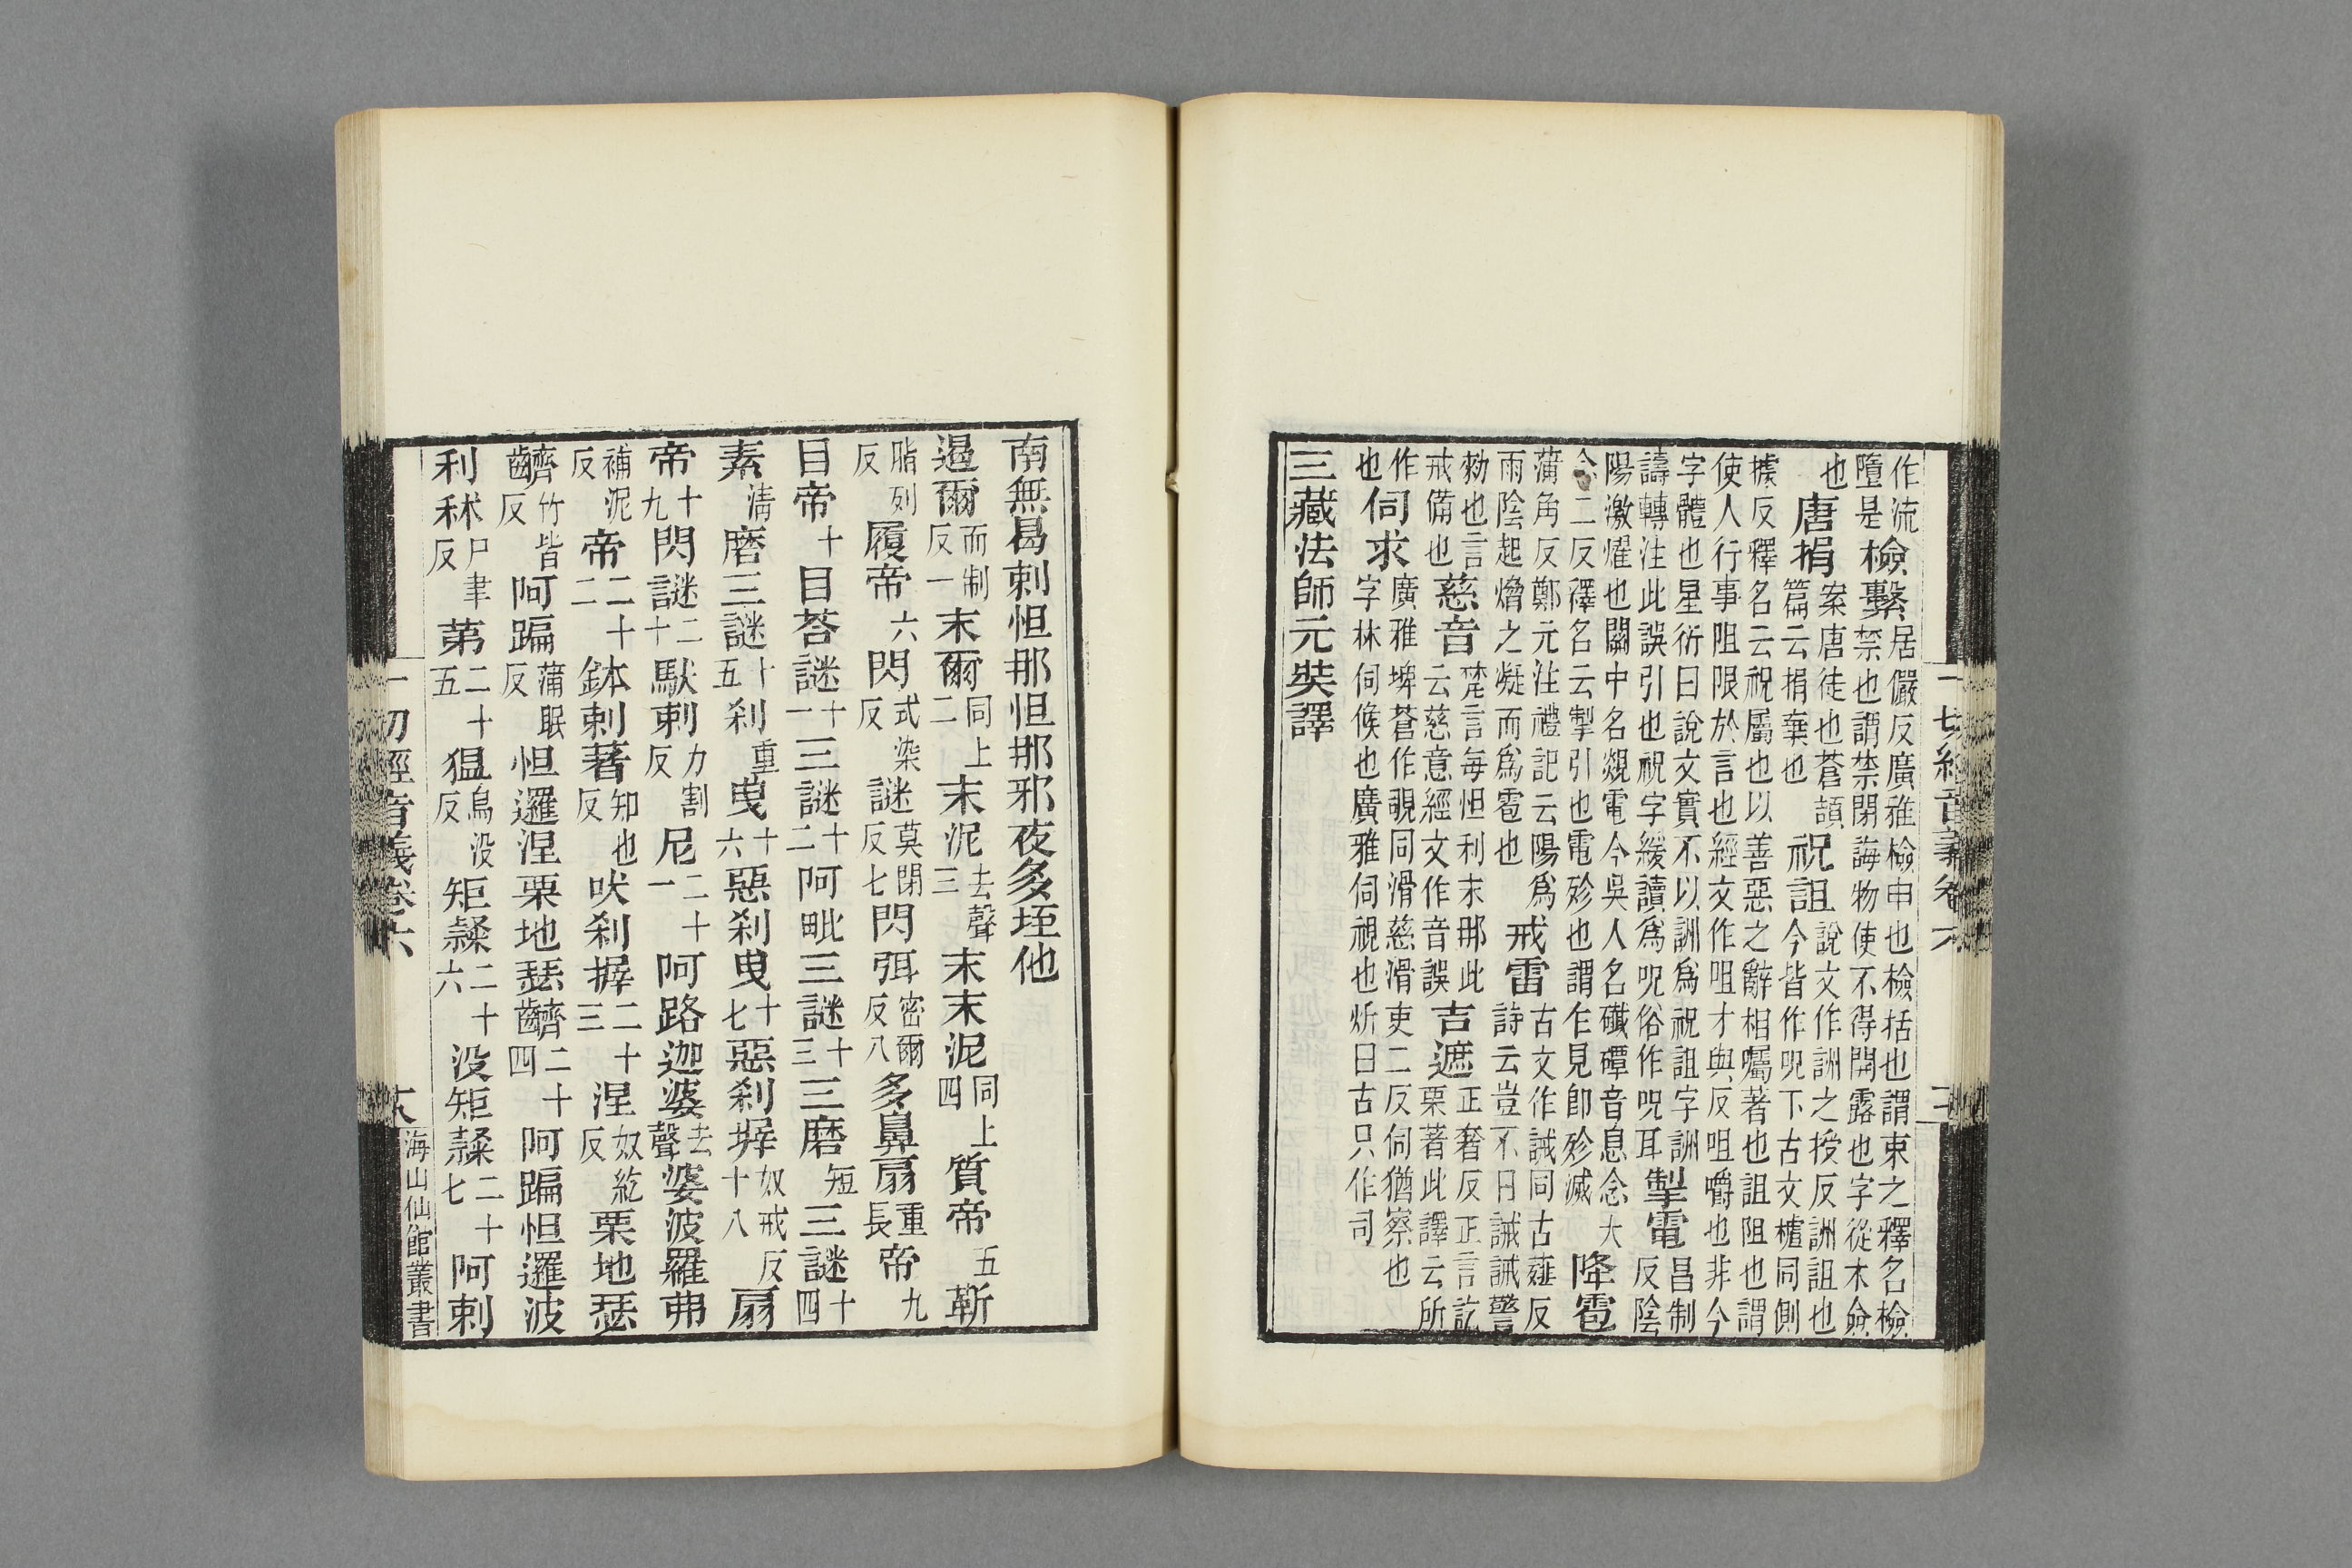 作流墮是檢繫居儼反廣雅檢申也檢括也謂束之釋名檢禁也謂禁閉誨物使不得開露也字從木僉
也唐捐案唐徒也蒼頡篇云捐棄也祝詛說文作詶之授反詶詛也今皆作呪下古文樝同側
據反釋名云祝屬也以善惡之辭相囑著也詛阻也謂使人行事阻限於言也經文作咀才與反咀嚼也非今
字體也星衍曰說文實不以詶爲祝詛字詶譸轉注此誤引也祝字緩讀爲呪俗作呪耳掣電昌制反陰
陽激燿也關中名覢電今吳人名磹音息念大念二反釋名云掣引也電殄也謂乍見即殄滅降雹
蒲角反鄭元注禮記云陽爲雨陰起熷之凝而爲雹也戒雷古文作誡同古薤反詩云豈不日誡誡警
勑也言戒備也慈音梵言每怛利末那此云慈意經文作音誤吉遮正奢反正言訖栗著此譯云所
作也伺求廣雅埤蒼作覗同滑慈滑吏二反伺猶察也字林伺候也廣雅伺視也炘曰古只作司
三藏法師元奘譯
一切經音義卷六
南無曷剌怛那怛那邪夜多垤他
遏爾而制反一末爾同上二末泥去聲三末末泥同上四質帝五蘄
脂列反履帝六閃式染反謎莫閉反七閃弭密爾反八多鼻扇重長帝九
目帝十目荅謎十一三謎十二阿毗三謎十三三磨短三謎十四
素淸磨三謎十五刹重曳十六惡刹曳十七惡刹搱奴戒反十八扇
帝十九閃謎二十馱剌力割反尼二十一阿路迦婆去聲婆波羅弗
補泥反帝二十二鉢剌著知也反吠刹搱二十三涅奴紇反栗地瑟
竹皆反阿蹁蒲眠反怛邏涅栗地瑟二十四阿蹁怛邏波
利秫尸聿反第二十五烏没反矩二十六没矩二十七阿剌
一切經音義卷六 十八 海山仙館叢書